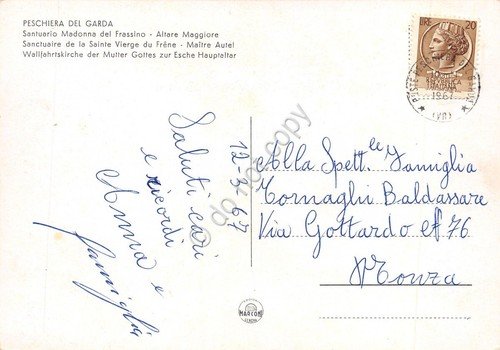 PESCHIERA DEL GARDA
Santuario Madonna del Frassino - Altare Maggiore
Sanctuaire de la Sainte Vierge du Frêne - Maître Autel
Wallfahrtskirche der Mutter Gottes zur Esche Hauptaltar
LIRE 20
POSTE
ITALIANE
1967
(VR)
12.4.67
Saluti cari
e ricordi
Anna e
famiglia
Alla Spett.le Famiglia
Tornaghi Baldassare
Via Gottardo N° 76
Monza
MARCON
do not copy